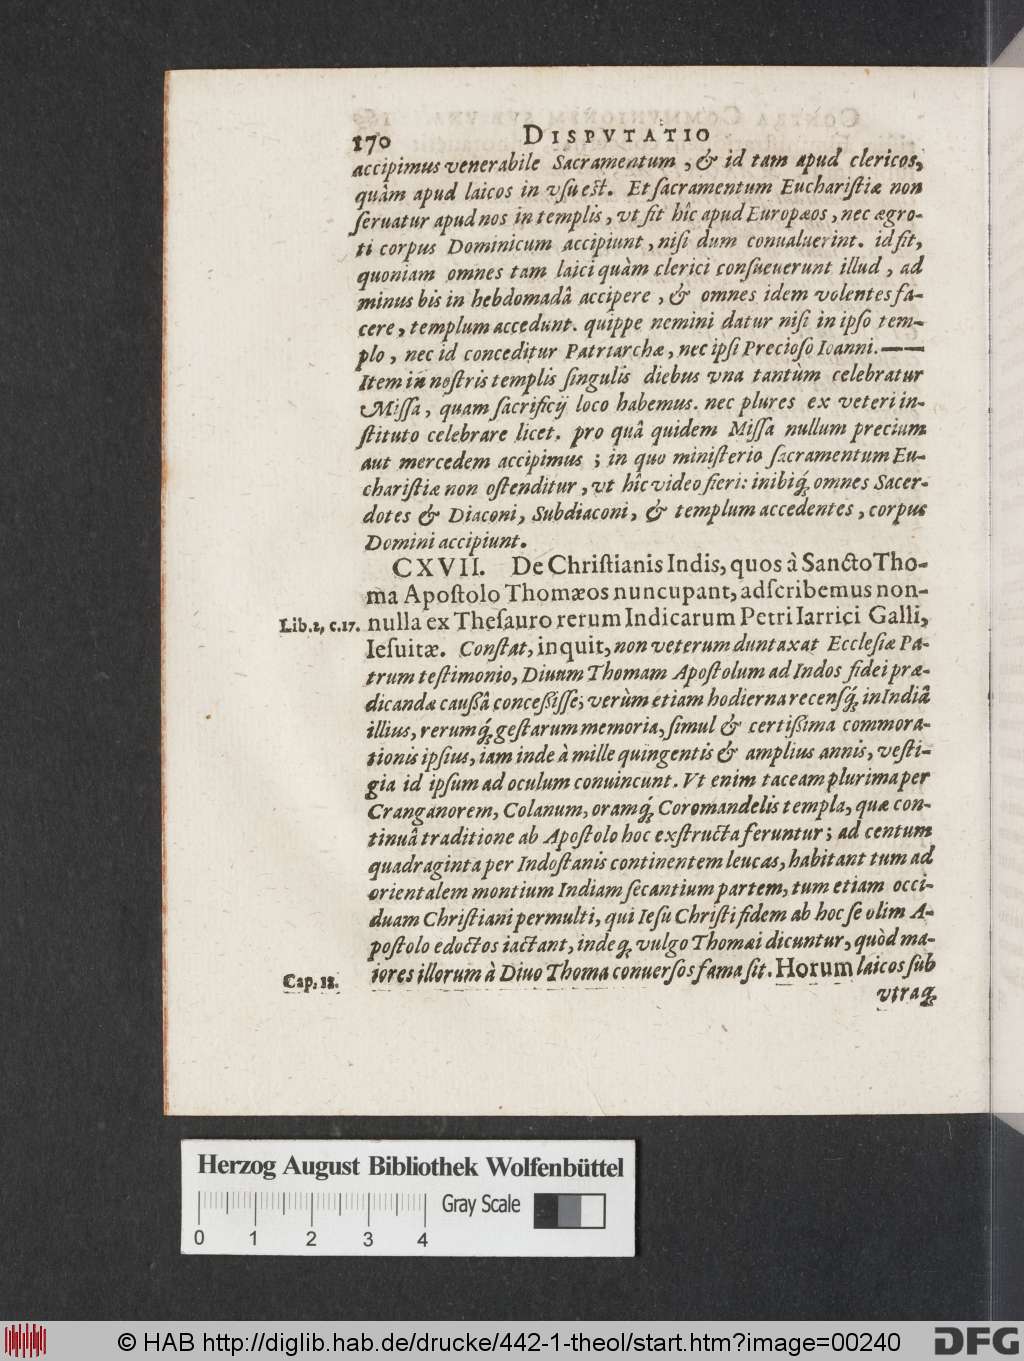 170 DISPVTATIO
accipimus venerabile Sacramentum, & id tam apud clericos,
quâm apud laicos in vſu eſt. Et ſacramentum Euchariſtiæ non
ſeruatur apud nos in templis, vt fit hîc apud Europæos, nec ægro-
ti corpus Dominicum accipiunt, niſi dum conualuerint. id fit,
quoniam omnes tam laici quàm clerici conſueuerunt illud, ad
minus bis in hebdomadâ accipere, & omnes idem volentes fa-
cere, templum accedunt. quippe nemini datur niſi in ipſo tem-
plo, nec id conceditur Patriarchæ, nec ipſi Precioſo Ioanni.——
Item in noſtris templis ſingulis diebus vna tantùm celebratur
Miſſa, quam ſacrificij loco habemus. nec plures ex veteri in-
ſtituto celebrare licet. pro quâ quidem Miſſa nullum precium
aut mercedem accipimus; in quo miniſterio ſacramentum Eu-
chariſtiæ non oſtenditur, vt hîc video fieri: inibiq́; omnes Sacer-
dotes & Diaconi, Subdiaconi, & templum accedentes, corpus
Domini accipiunt.
CXVII. De Chriſtianis Indis, quos à Sancto Tho-
ma Apoſtolo Thomæos nuncupant, adſcribemus non-
Lib. 2, c. 17. nulla ex Theſauro rerum Indicarum Petri Iarrici Galli,
Ieſuitæ. Conſtat, inquit, non veterum duntaxat Eccleſiæ Pa-
trum teſtimonio, Diuum Thomam Apoſtolum ad Indos fidei præ-
dicandæ cauſſâ conceßiſſe; verùm etiam hodierna recenſq́; in Indiâ
illius, rerumq́; geſtarum memoria, ſimul & certißima commora-
tionis ipſius, iam inde à mille quingentis & amplius annis, veſti-
gia id ipſum ad oculum conuincunt. Vt enim taceam plurima per
Cranganorem, Colanum, oramq́; Coromandelis templa, quæ con-
tinuâ traditione ab Apoſtolo hoc exſtructa feruntur; ad centum
quadraginta per Indoſtanis continentem leucas, habitant tum ad
orientalem montium Indiam ſecantium partem, tum etiam occi-
duam Chriſtiani permulti, qui Ieſu Chriſti fidem ab hoc ſe olim A-
poſtolo edoctos iactant, indeq; vulgo Thomæi dicuntur, quòd ma-
Cap. 18. iores illorum à Diuo Thoma conuerſos fama ſit. Horum laicos ſub
vtraq;
Herzog August Bibliothek Wolfenbüttel
Gray Scale
0 1 2 3 4
© HAB http://diglib.hab.de/drucke/442-1-theol/start.htm?image=00240
DFG